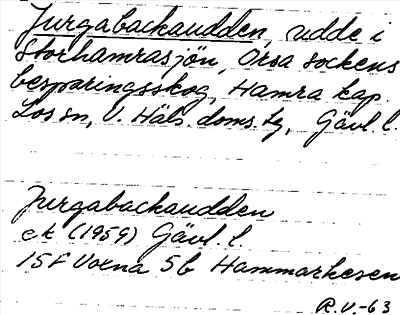 Jurgabackaudden, udde i
Storhamrasjön, Orsa sockens
besparingsskog, Hamra kap.
Los sn, V. Häls. doms. tg, Gävl. l.
Jurgabackaudden
ek (1959) Gävl. l.
15F Voxna 5b Hammarkesen
R.V.-63